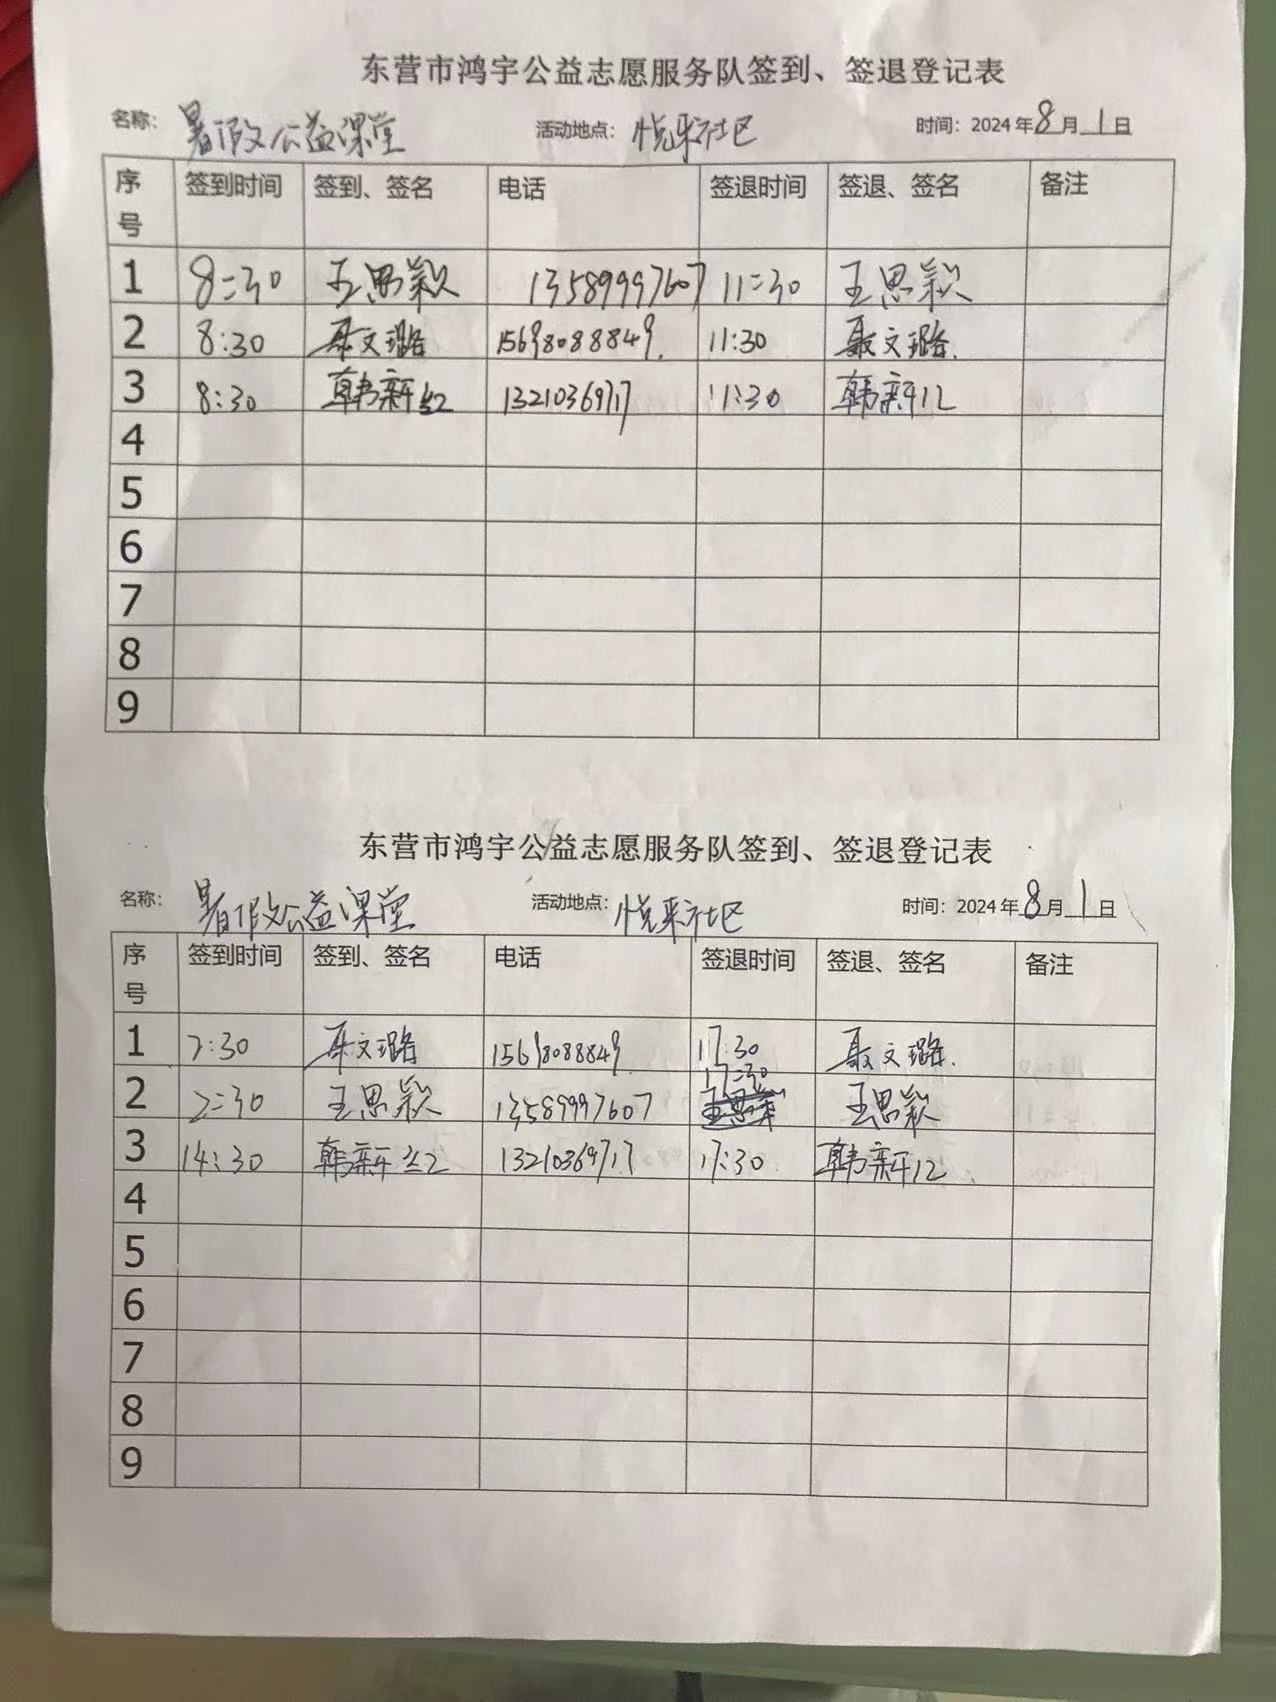 东营市鸿宇公益志愿服务队签到、签退登记表
名称： 暑假公益课堂 活动地点： 悦来社区 时间：2024年8月1日
序号 签到时间 签到、签名 电话 签退时间 签退、签名 备注
1 8:30 王思颖 13589997607 11:30 王思颖
2 8:30 聂文璐 15698088849. 11:30 聂文璐.
3 8:30 韩新红 13210369717 11:30 韩新红
4
5
6
7
8
9
东营市鸿宇公益志愿服务队签到、签退登记表
名称： 暑假公益课堂 活动地点： 悦来社区 时间：2024年8月1日
序号 签到时间 签到、签名 电话 签退时间 签退、签名 备注
1 2:30 聂文璐 15698088849 17:30 聂文璐.
2 2:30 王思颖 13589997607 17:30 王思颖
3 14:30 韩新红 13210369717 17:30 韩新红
4
5
6
7
8
9